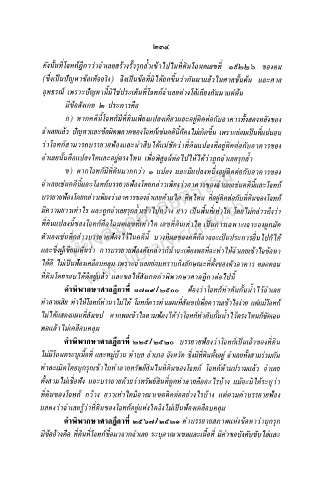 ๒๓๔
ดังนั้นที่โจทก์ฎีกาว่าจำเลยสร้างรั้วรุกล้ำเข้าไปในที่ดินโฉนดเลขที่ ๑๕๒๒๖ ของตน
(ซึ่งเป็นปัญหาข้อเท็จจริง) จึงเป็นข้อที่มิได้ยกขึ้นว่ากันมาแล้วในศาลชั้นต้น และศาล
อุทธรณ์ เพราะปัญหานี้มิใช่ประเด็นที่โจทก์จำเลยต่างได้เถียงกันมาแต่ต้น
มีข้อสังเกต ๒ ประการคือ
ก) หากคดีนี้โจทก์มีที่ดินเพียงแปลงเดียวและอยู่ติดต่อกับอาคารทั้งสองหลังของ
จำเลยแล้ว ปัญหาและข้อผิดพลาดของโจทก์เช่นคดีนี้ก็คงไม่เกิดขึ้น เพราะย่อมเป็นที่แน่นอน
ว่าโจทก์สามารถบรรยายฟ้องและนำสืบได้แน่ชัดว่า ที่ดินแปลงที่อยู่ติดต่อกับอาคารของ
จำเลยนั้นคือแปลงใดและอยู่ตรงไหน เพื่อพิสูจน์ต่อไปให้ได้ว่าถูกจำเลยรุกล้ำ
ข) หากโจทก์มีที่ดินมากกว่า ๑ แปลง และมีแปลงหนึ่งอยู่ติดต่อกับอาคารของ
จำเลยเช่นคดีนี้และโจทก์บรรยายฟ้องโดยกล่าวเพียงว่าอาคารของจำเลยเช่นคดีนี้และโจทก์
บรรยายฟ้องโดยกล่าวเพียงว่าอาคารของจำเลยด้านใด ทิศไหน ที่อยู่ติดต่อกับที่ดินของโจทก์
มีความยาวเท่าไร และถูกจำเลยรุกล้ำเข้าไปกว้าง ยาว เป็นพื้นที่เท่าใด โดยไม่กล่าวถึงว่า
ที่ดินแปลงนี้ของโจทก์คือโฉนดเลขที่เท่าใด เลขที่ดินเท่าใด เป็นการเฉพาะเจาะจงผูกมัด
ตัวเองเช่นที่กล่าวบรรยายฟ้องไว้ในคดีนี้ บางทีผลของคดีก็อาจจะเป็นประการอื่นไปก็ได้
และข้อผู้เขียนเห็นว่า การบรรยายฟ้องดังกล่าวก็น่าจะเพียงพอที่จะทำให้จำเลยเข้าใจข้อหา
ได้ดี ไม่เป็นฟ้องเคลือบคลุม เพราะจำเลยย่อมทราบถึงลักษณะที่ตั้งของตัวอาคาร ตลอดจน
ที่ดินโดยรอบได้ดีอยู่แล้ว และขอให้สังเกตคำพิพากษาศาลฎีกาต่อไปนี้
คำพิพากษาศาลฎีกาที่ ๑๗๑๗/๒๕๐๐ ฟ้องว่าโจทก์ทำคันกั้นน้ำไว้จำเลย
ทำลายเสีย ทำให้โจทก์ทำนาไม่ได้ โจทก์ควรทำแผนที่สังเขปเพื่อความเข้าใจง่าย แต่แม้โจทก์
ไม่ได้แสดงแผนที่สังเขป หากพอเข้าใจตามฟ้องได้ว่าโจทก์ทำคันกั้นน้ำไว้ตรงไหนก็ชัดเจน
พอแล้ว ไม่เคลือบคลุม
คำพิพากษาศาลฎีกาที่ ๒๒๕/๒๕๒๐ บรรยายฟ้องว่าโจทก์เป็นเจ้าของที่ดิน
ไม่มีโฉนดระบุเนื้อที่ และหมู่บ้าน ตำบล อำเภอ จังหวัด ซึ่งมีที่ดินตั้งอยู่ จำเลยทั้งสามร่วมกัน
ทำละเมิดโดยบุกรุกเข้าไปทำลายทรัพย์สินในที่ดินของโจทก์ โจทก์ห้ามปรามแล้ว จำเลย
ทั้งสามไม่เชื่อฟัง และบรรยายด้วยว่าทรัพย์สินที่ถูกทำลายคืออะไรบ้าง แม้จะมิได้ระบุว่า
ที่ดินของโจทก์ กว้าง ยาวเท่าใดมีอาณาเขตติดต่ออย่างไรบ้าง แต่ตามคำบรรยายฟ้อง
แสดงว่าจำเลยรู้ว่าที่ดินของโจทก์อยู่แห่งใดจึงไม่เป็นฟ้องเคลือบคลุม
คำพิพากษาศาลฎีกาที่ ๒๕๖๗/๒๕๒๑ คำบรรยายสภาพแห่งข้อหาว่าบุกรุก
มีข้ออ้างคือ ที่ดินที่โจทก์ซื้อมาจากจำเลย ระบุอาณาเขตและเนื้อที่ มีคำขอบังคับขับไล่และ